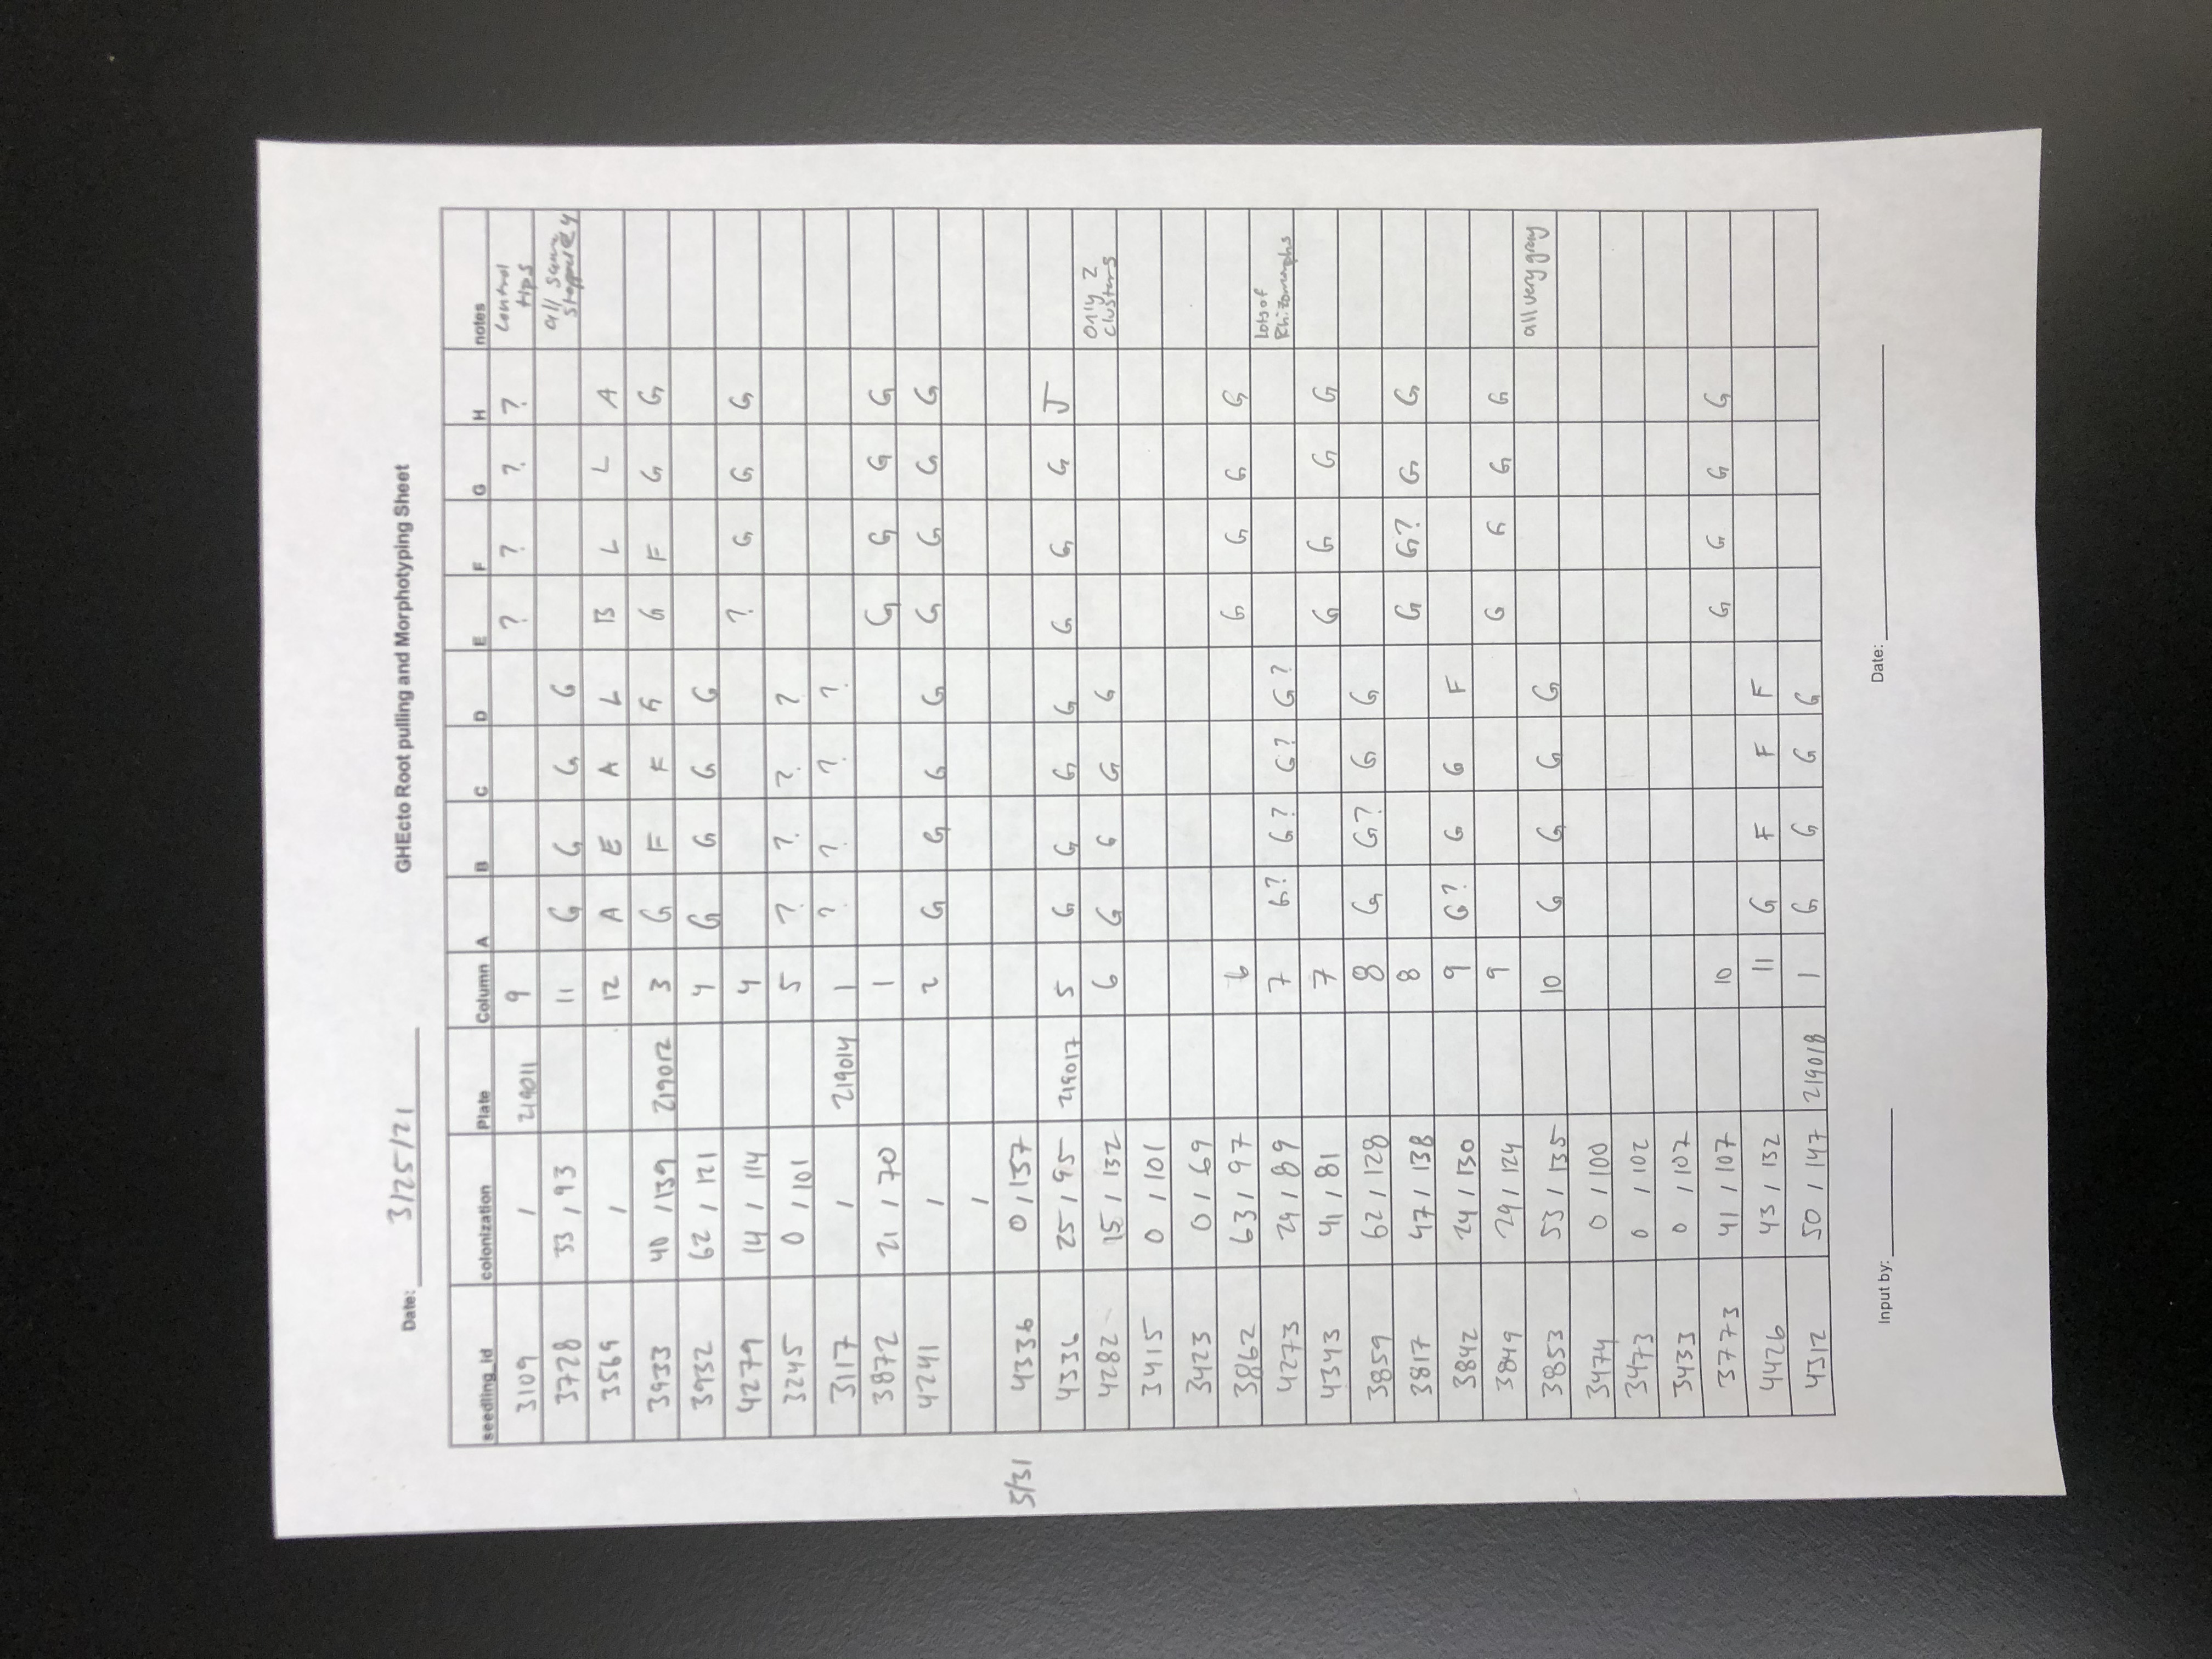 Date: 3/25/21 GHEcto Root pulling and Morphotyping Sheet
seedling_id colonization Plate Column A B C D E F G H notes
3109 / 219011 9 ? ? ? ? Control tips
3728 33 / 93 11 G G G G all same stopped @ 4
3569 / 12 A E A L B L L A
3933 40 / 139 219012 3 G F F G G F G G
3932 62 / 121 4 G G G G
4279 14 / 114 4 ? G G G
3245 0 / 101 5 ? ? ? ?
3117 / 219014 1 ? ? ? ?
3872 21 / 70 1 G G G G
4241 / 2 G G G G G G G G
/
5/31 4336 0 / 137
4336 25 / 95 219017 5 G G G G G G G J
4282 15 / 132 6 G G G G Only 2 clusters
3415 0 / 101
3423 0 / 69
3862 63 / 97 6 G G G G
4273 29 / 89 7 G? G? G? G? Lots of Rhizomorphs
4343 41 / 81 7 G G G G
3859 62 / 128 8 G G? G G
3817 47 / 138 8 G G? G G
3842 24 / 130 9 G? G G F
3849 29 / 124 9 G G G G
3853 53 / 135 10 G G G G all very gray
3474 0 / 100
3473 0 / 102
3433 0 / 107
3773 41 / 107 10 G G G G
4426 43 / 132 11 G F F F
4312 50 / 147 219018 1 G G G G
Input by: Date: